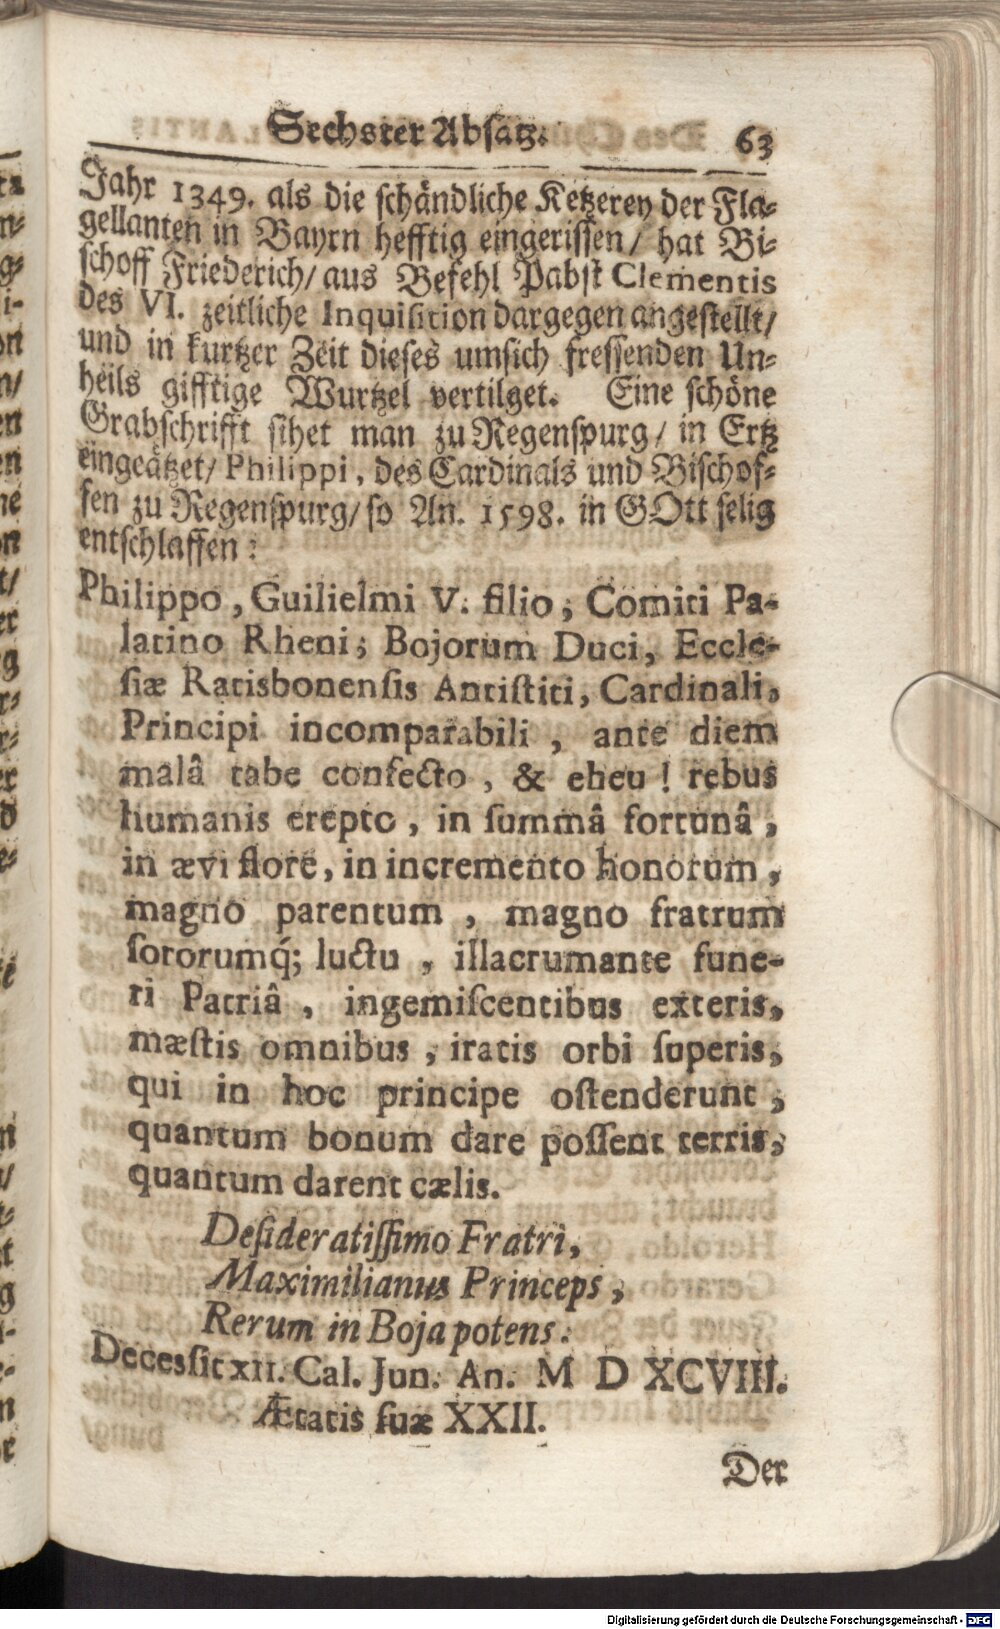 Sechster Absatz. 63
Jahr 1349. als die schändliche Ketzerey der Fla-
gellanten in Bayrn hefftig eingerissen/ hat Bi-
schoff Friederich/ aus Befehl Pabst Clementis
des VI. zeitliche Inquisition dargegen angestellt/
und in kurtzer Zeit dieses umsich fressenden Un-
heils gifftige Wurtzel vertilget. Eine schöne
Grabschrifft sihet man zu Regenspurg/ in Ertz
eingeätzet/ Philippi, des Cardinals und Bischof-
fen zu Regenspurg/ so An. 1598. in GOtt selig
entschlaffen:
Philippo, Guilielmi V. filio, Comiti Pa-
latino Rheni; Bojorum Duci, Eccle-
siæ Ratisbonensis Antistiti, Cardinali,
Principi incomparabili, ante diem
malâ tabe confecto, & eheu! rebus
humanis erepto, in summâ fortunâ,
in ævi flore, in incremento honorum,
magno parentum, magno fratrum
sororumq́; luctu, illacrumante fune-
ri Patriâ, ingemiscentibus exteris,
mæstis omnibus, iratis orbi superis,
qui in hoc principe ostenderunt,
quantum bonum dare possent terris,
quantum darent cælis.
Desideratissimo Fratri,
Maximilianus Princeps,
Rerum in Boja potens.
Decessit XII. Cal. Jun. An. M D XCVIII.
Ætatis suæ XXII.
Der
Digitalisierung gefördert durch die Deutsche Forschungsgemeinschaft - DFG